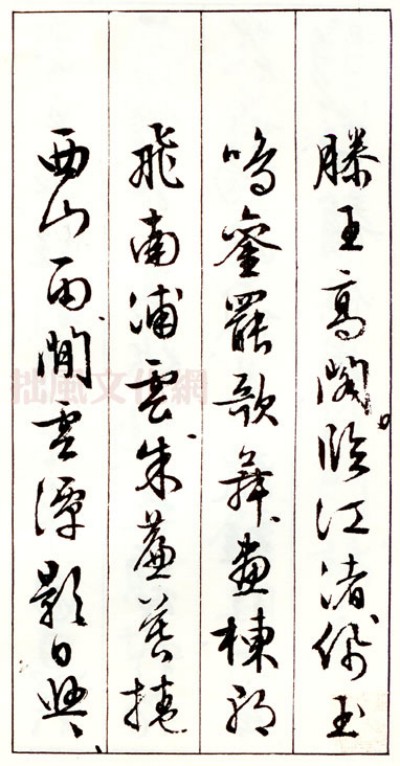 滕王高閣臨江渚佩玉
鳴鑾罷歌舞畫棟朝
飛南浦雲朱簾暮捲
西山雨閒雲潭影日悠〻
拙風文化網